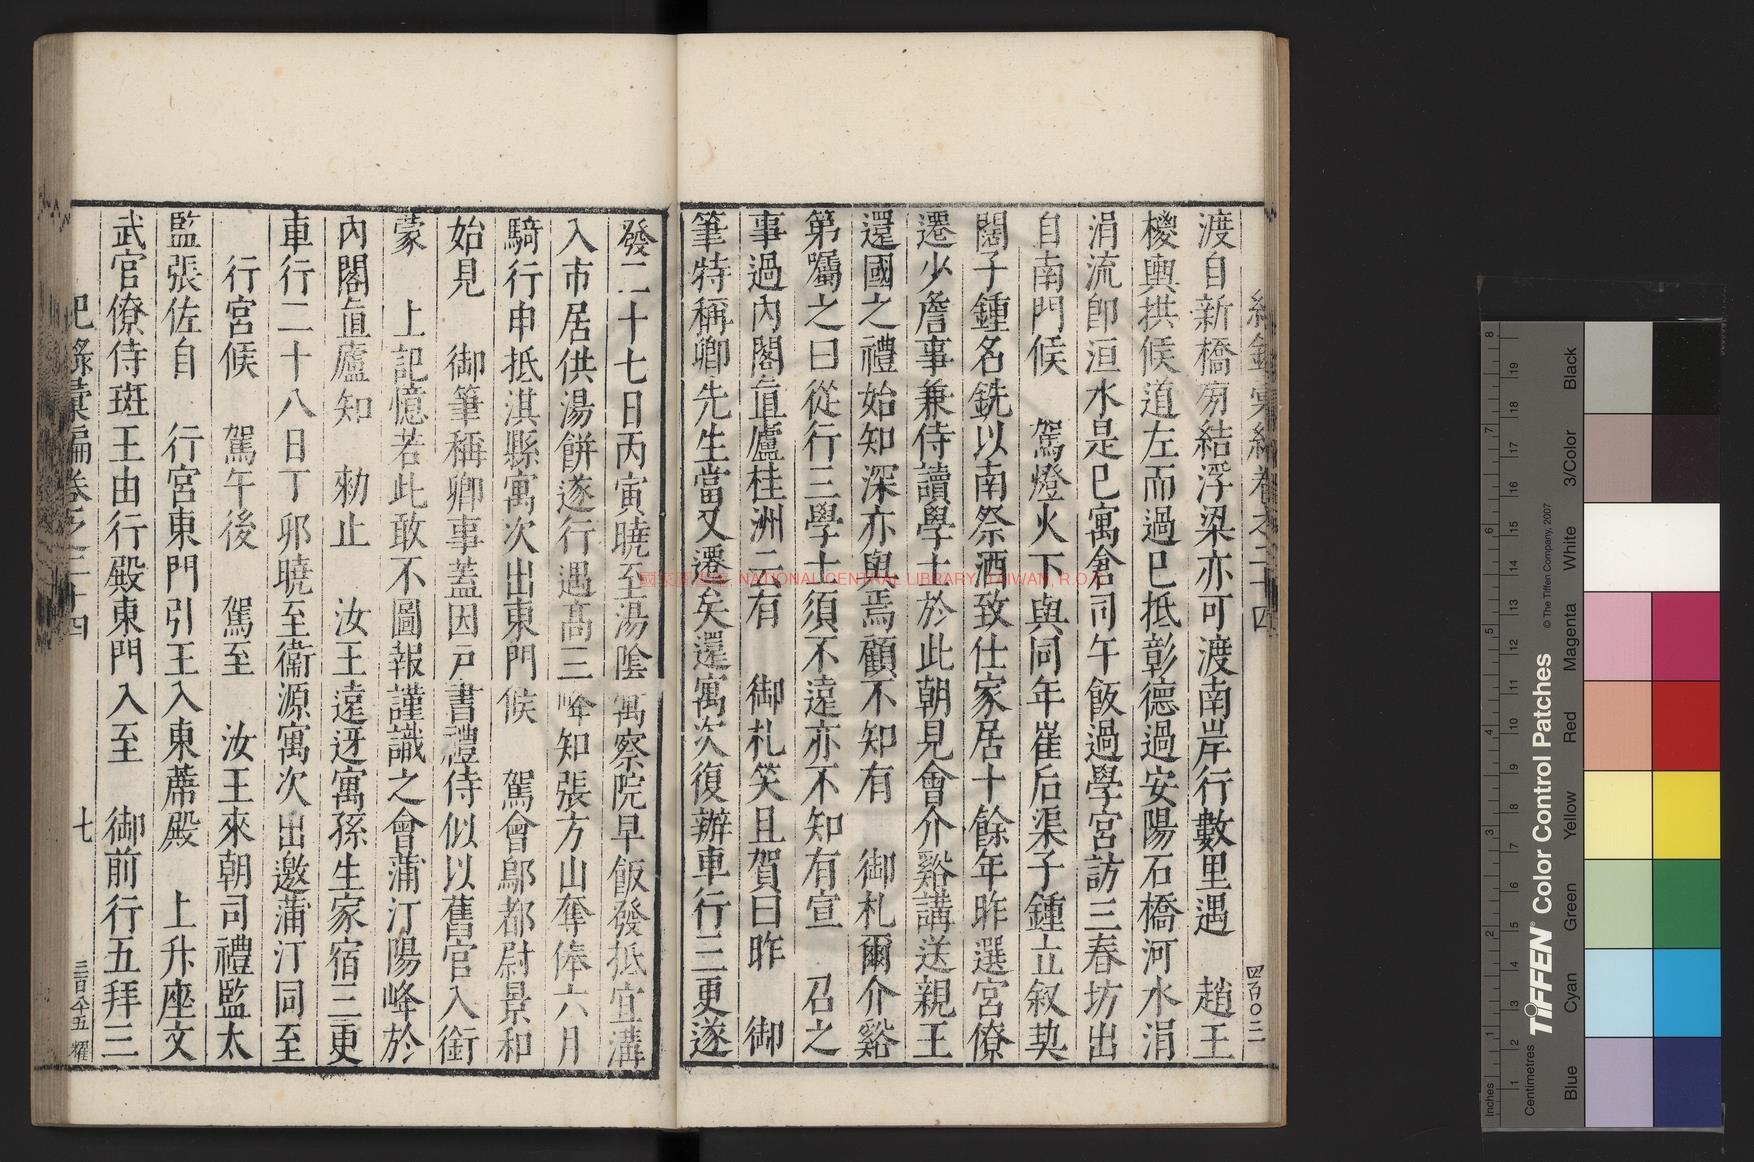 渡自新橋旁結浮梁亦可渡南岸行數里遇　趙王
椶輿拱候道左而過巳抵彰德過安陽石橋河水涓
涓流卽洹水是巳寓倉司午飯過學宮訪三春坊出
自南門候　駕燈火下與同年崔后渠子鍾立敘契
闊子鍾名銑以南祭酒致仕家居十餘年昨選宮僚
遷少詹事兼侍讀學士於此朝見會介谿講送親王
還國之禮始知深亦與焉顧不知有　御札爾介谿
第囑之曰從行三學士須不遠亦不知有宣　召之
事過內閣直廬桂洲云有　御札笑且賀曰昨　御
筆特稱卿先生當又遷矣還寓次復辦車行三更遂
發二十七日丙寅曉至湯陰寓察院早飯發抵宜溝
入市居供湯餅遂行遇高三峰知張方山奪俸六月
騎行申抵淇縣寓次出東門候　駕會鄔都尉景和
始見　御筆稱卿事蓋因戸書禮侍似以舊官入銜
蒙　上記憶若此敢不圖報謹識之會蒲汀陽峰於
內閣直廬知　勑止　汝王遠迓寓孫生家宿三更
車行二十八日丁卯曉至衞源寓次出邀蒲汀同至
　行宮候　駕午後　駕至　汝王來朝司禮監太
監張佐自　行宮東門引王入東蓆殿　上升座文
武官僚侍班王由行殿東門入至　御前行五拜三
紀錄彙編卷之二十四　七　三百八十五　耀
四百〇三
國家圖書館, NATIONAL CENTRAL LIBRARY, TAIWAN, R.O.C
Inches
Centimetres
TIFFEN Color Control Patches
© The Tiffen Company, 2007
Blue
Cyan
Green
Yellow
Red
Magenta
White
3/Color
Black